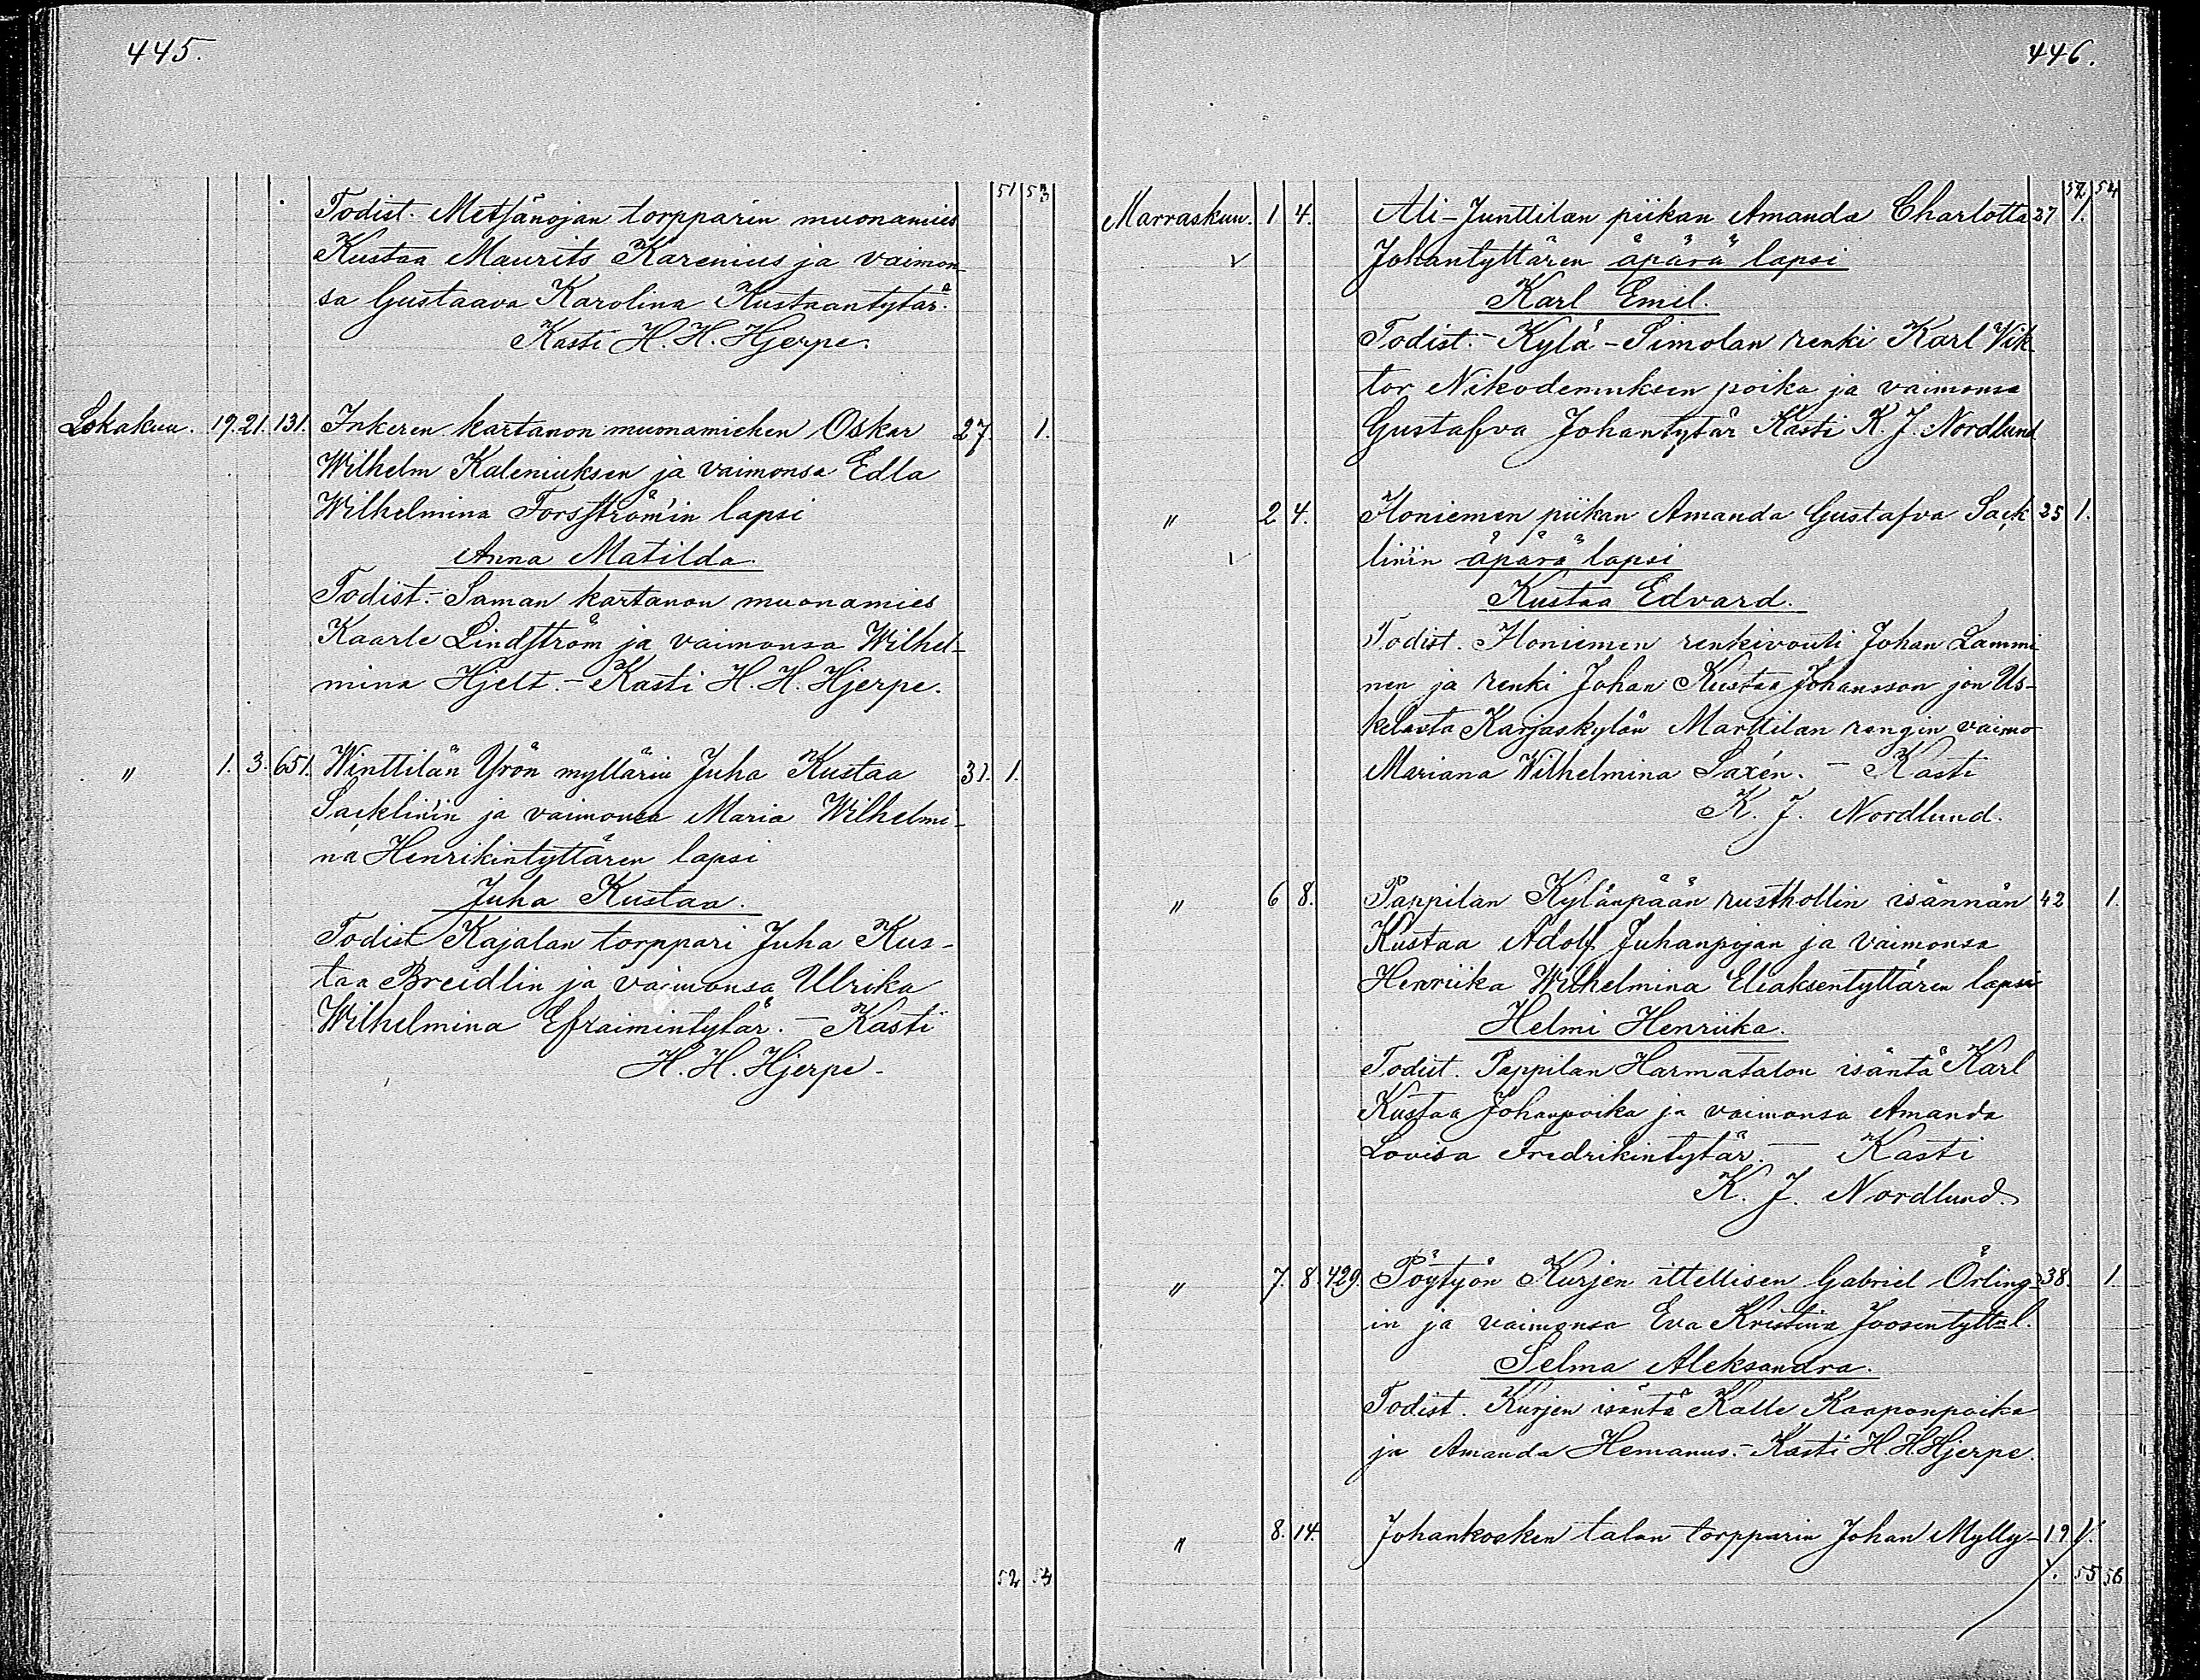 445.
51 53
Todist. Metsänojan torpparin muonamies
Kustaa Maurits Karenius ja vaimon-
sa Gustaava Karolina Kustaantytär.
Kasti H. H. Hjerpe.
Lokakuu. 19. 21. 131. Inkeren kartanon muonamiehen Oskar 27. 1.
Wilhelm Kaleniuksen ja vaimonsa Edla
Wilhelmina Forsströmin lapsi
Anna Matilda.
Todist. - Saman kartanon muonamies
Kaarle Lindström ja vaimonsa Wilhel-
mina Hjelt. - Kasti H. H. Hjerpe.
" 1. 3. 651. Winttilän Yrön myllärin Juha Kustaa 31. 1.
Sacklinin ja vaimonsa Maria Wilhelmi-
na Henrikintyttären lapsi
Juha Kustaa.
Todist Kajalan torppari Juha Kus-
taa Breidlin ja vaimonsa Ulrika
Wilhelmina Efraimintytär. - Kasti
H. H. Hjerpe.
52 54
446.
52 54
Marraskuu. 1 4. Ali-Junttilan piikan Amanda Charlotta 27 1.
Johantyttären äpärä lapsi
Karl Emil.
Todist. - Kylä-Simolan renki Karl Vik-
tor Nikodemuksen poika ja vaimonsa
Gustafva Johantytär Kasti K. J. Nordlund
" 2 4. Honiemen piikan Amanda Gustafva Sack 25 1.
linin äpärä lapsi
Kustaa Edvard.
Todist. Honiemen renkivouti Johan Lammi
nen ja renki Johan Kustaa Johansson jon Us-
kelasta Karjaskylän Marttilan rengin vaimo
Mariana Wilhelmina Saxén. - Kasti
K. J. Nordlund.
" 6 8. Pappilan Kylänpään rusthollin isännän 42 1.
Kustaa Adolf Juhanpojan ja vaimonsa
Henriika Wilhelmina Eliaksentyttären lapsi
Helmi Henriika.
Todist. Pappilan Harmatalon isäntä Karl
Kustaa Johanpoika ja vaimonsa Amanda
Lovisa Fredrikintytär. - Kasti
K. J. Nordlund.
" 7. 8. 429. Pöytyön Kurjen ittellisen Gabriel Örling- 38. 1.
in ja vaimonsa Eva Kristina Joosentytt=l.
Selma Aleksandra.
Todist. Kurjen isäntä Kalle Kaaponpoika
ja Amanda Hemanus. - Kasti H. H. Hjerpe.
" 8. 14. Johankosken talon torpparin Johan Mylly- 19 1.
55 56